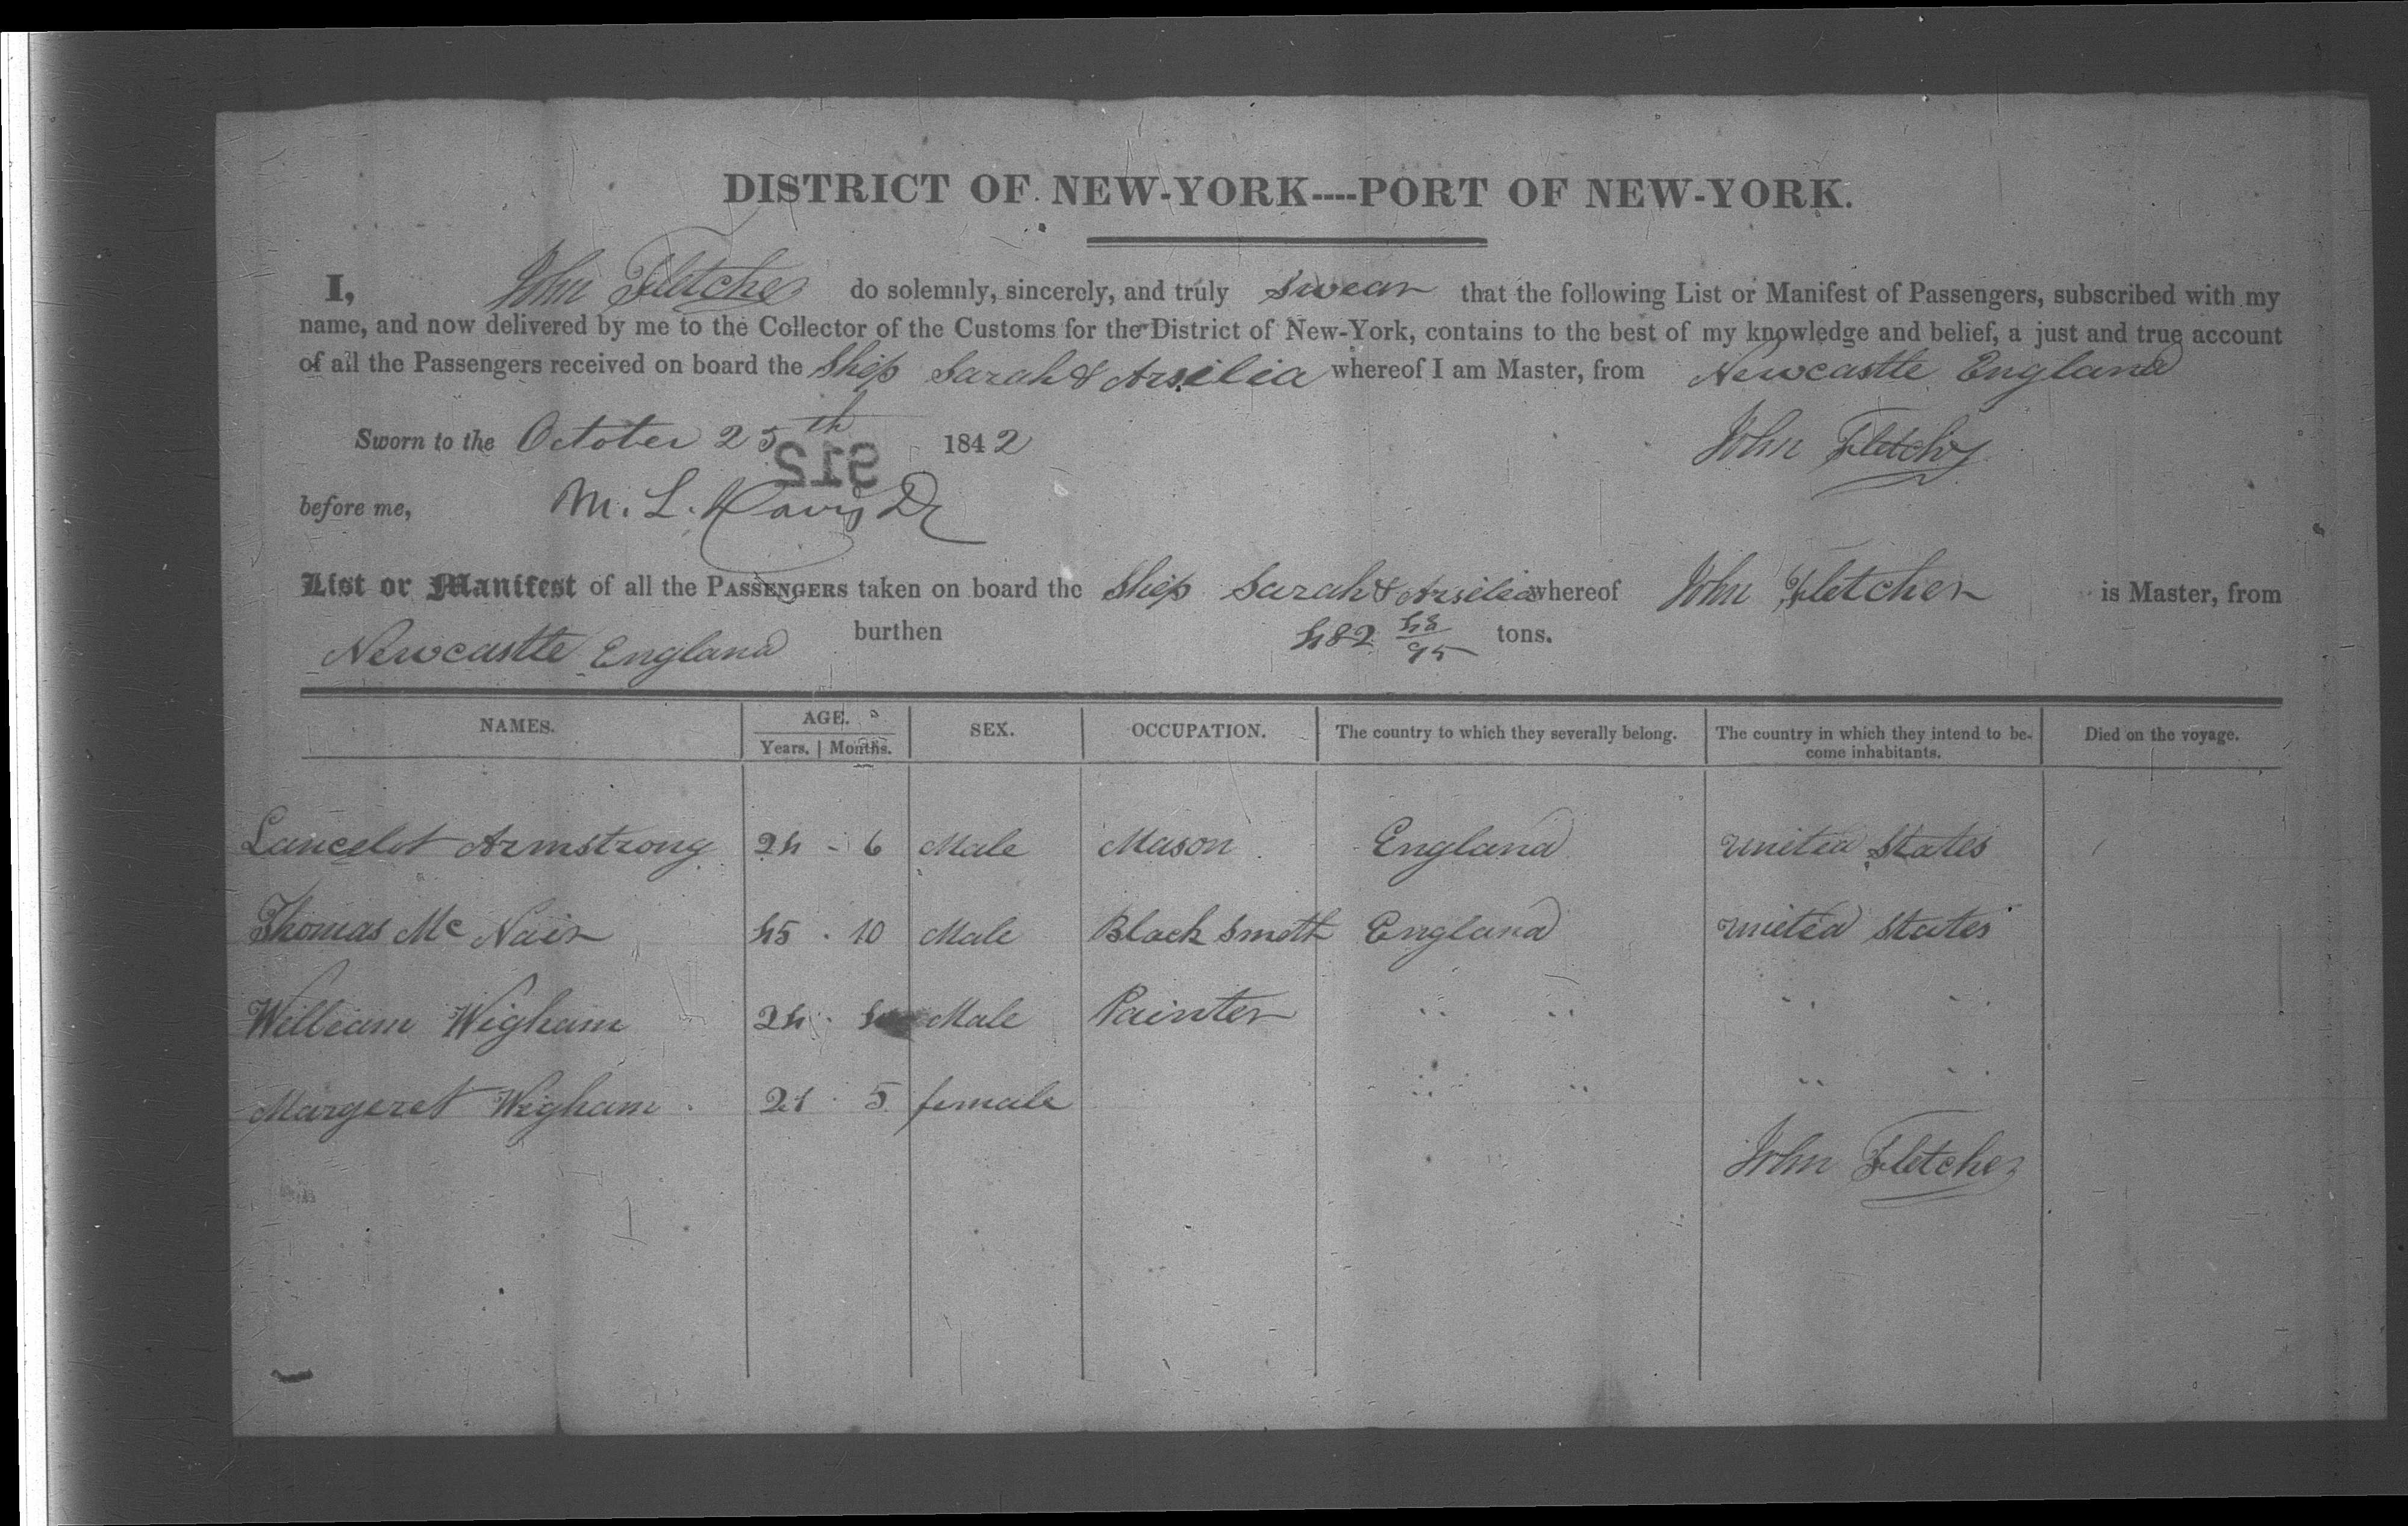 DISTRICT OF NEW-YORK----PORT OF NEW-YORK.
I, John Fletcher do solemnly, sincerely, and truly swear that the following List or Manifest of Passengers, subscribed with my
name, and now delivered by me to the Collector of the Customs for the District of New-York, contains to the best of my knowledge and belief, a just and true account
of all the Passengers received on board the Ship Sarah & Arsilia whereof I am Master, from Newcastle England
Sworn to the October 25th 1842 John Fletcher
912
before me, M. L. Davis
List or Manifest of all the PASSENGERS taken on board the Ship Sarah & Arsilia whereof John Fletcher is Master, from
Newcastle England burthen 482 48/95 tons.
NAMES. AGE. SEX. OCCUPATION. The country to which they severally belong. The country in which they intend to be- Died on the voyage.
Years. | Months. come inhabitants.
Lancelot Armstrong 24 - 6 Male Mason England United States
Thomas Mc Nair 45 - 10 Male Black Smith England United States
William Wigham 24 Male Painter " " " "
Margeret Wigham 21 - 5 female " " " "
John Fletcher